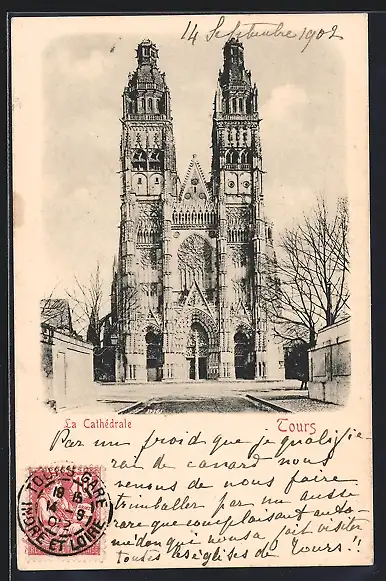 14 Septembre 1902
La Cathédrale
Tours
Par un froid que je qualifie-
rai de canard nous
venons de nous faire
trimballer par un aussi
rare que complaisant auto-
médon qui nous a fait visiter
toutes les églises de Tours!!
TOURS-GARE
18 15
14 9
02
INDRE ET LOIRE